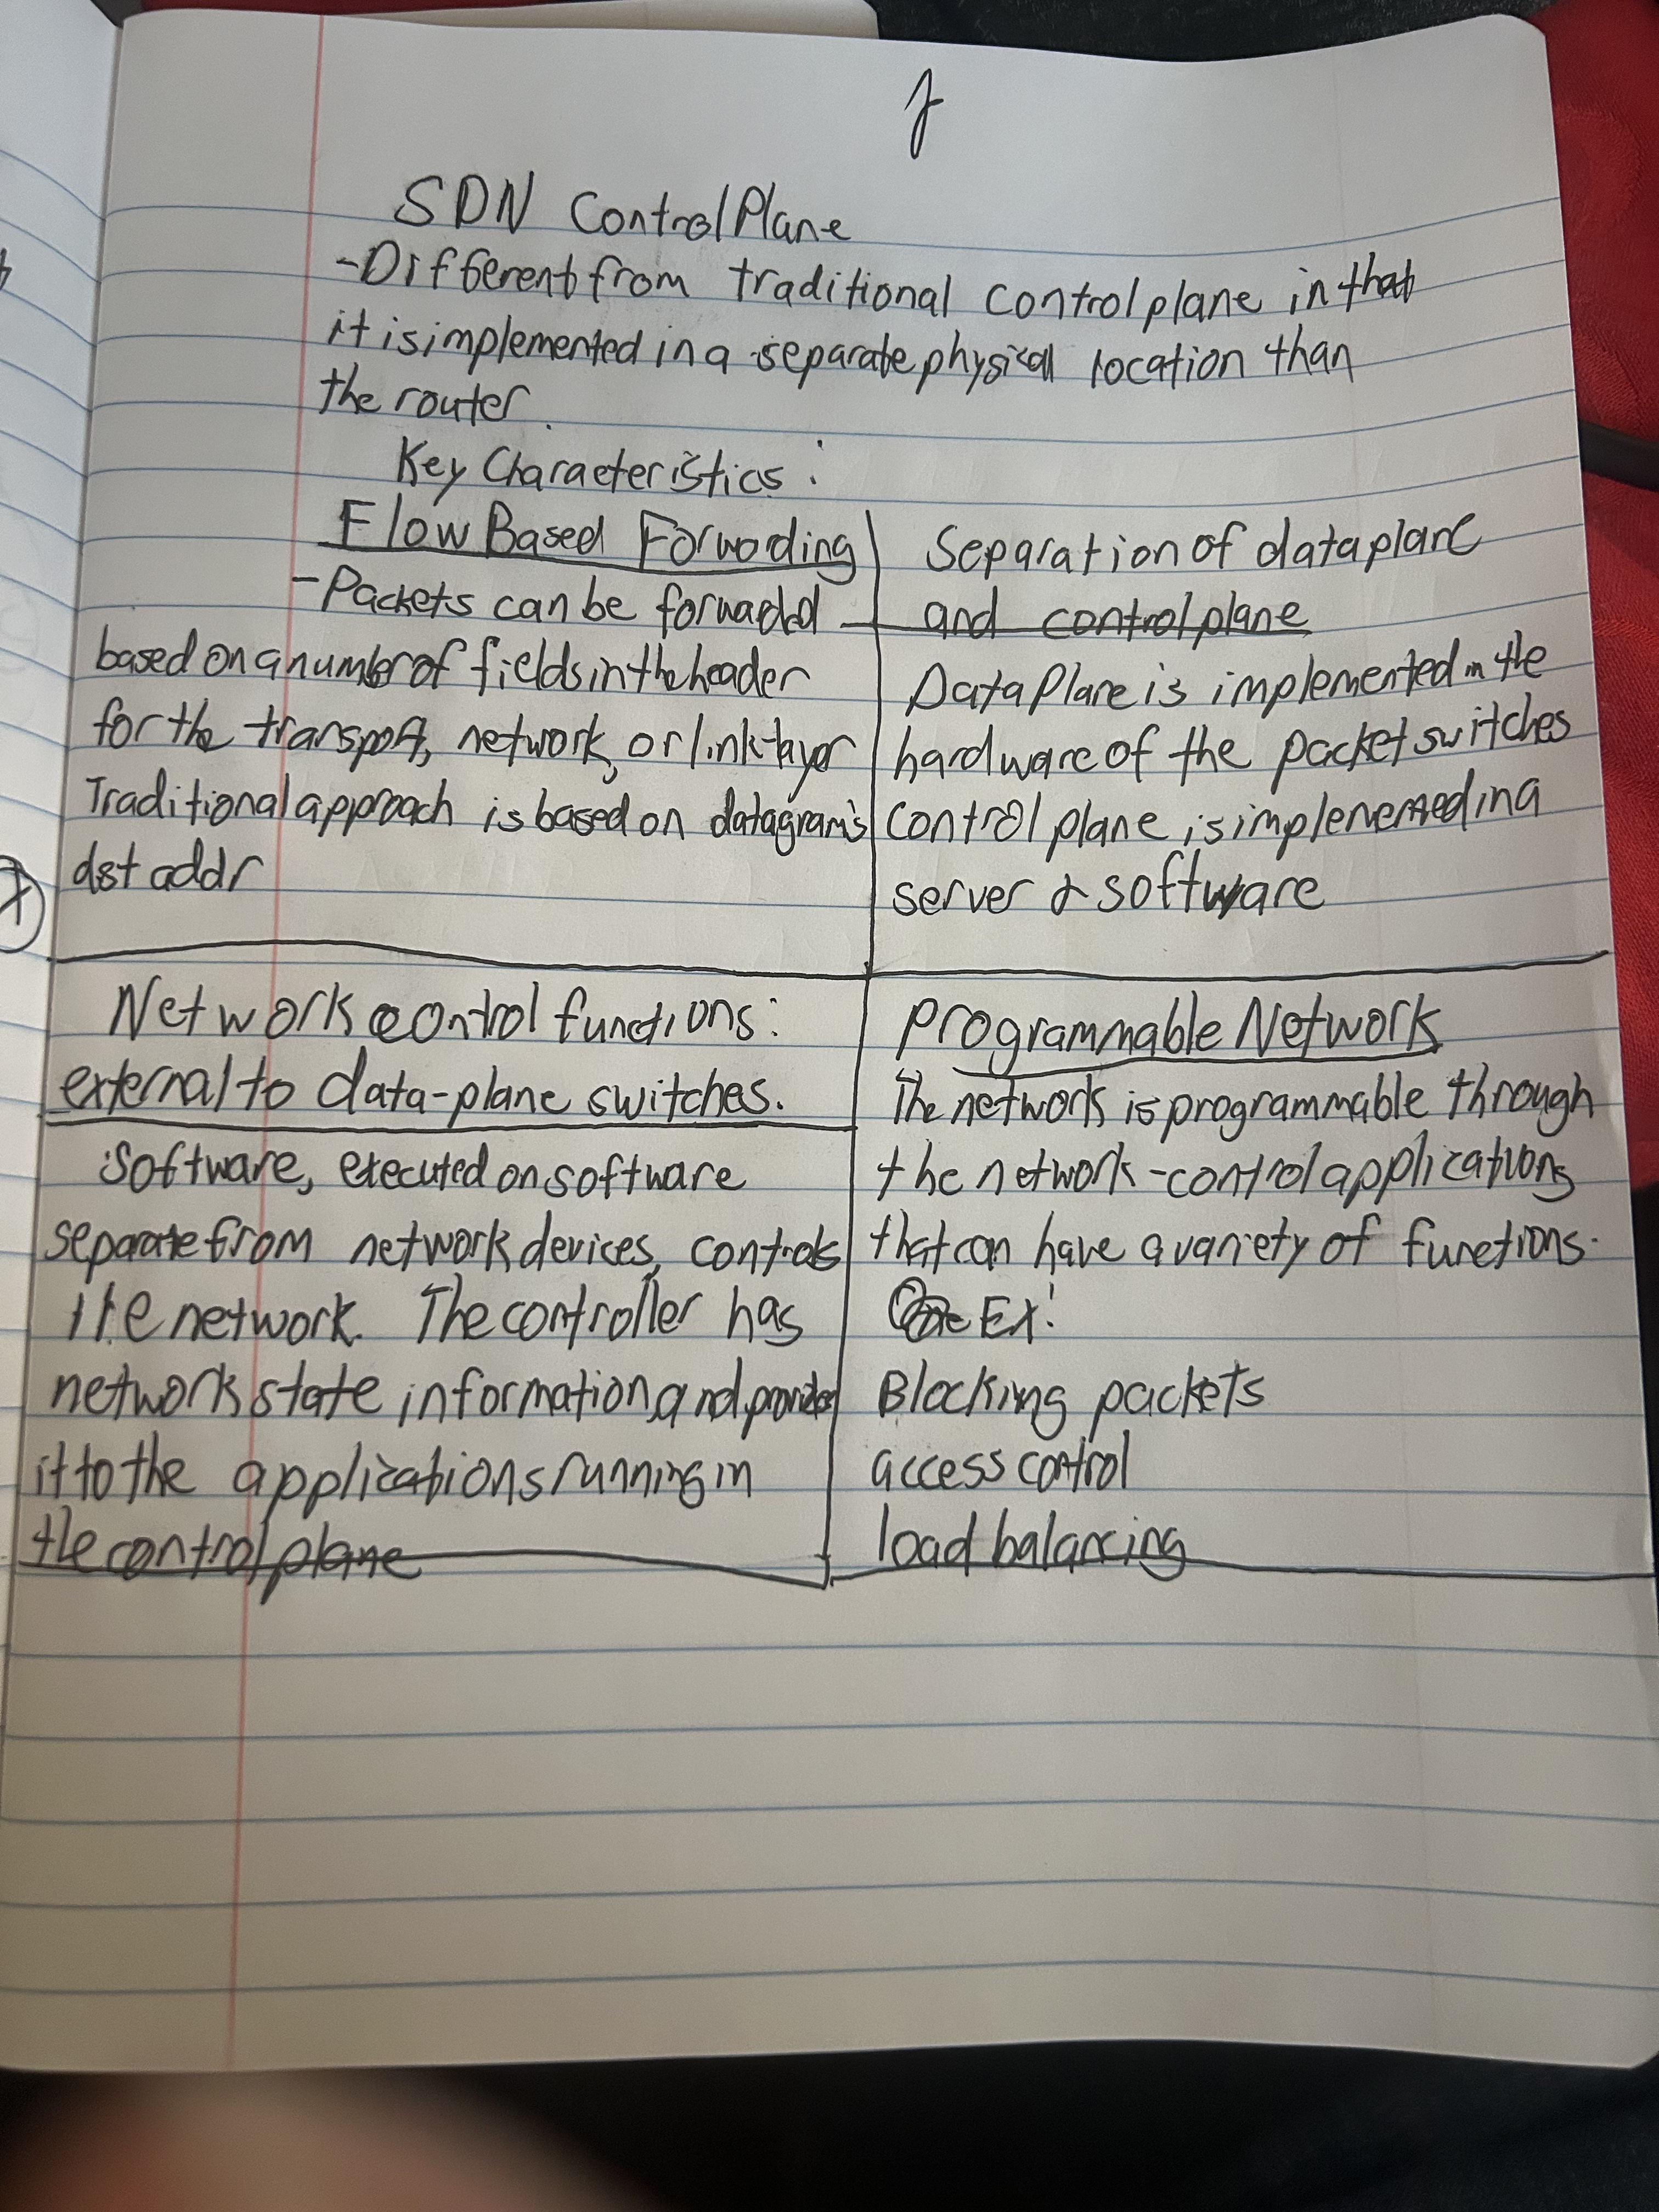 SDN Control Plane
-Different from traditional control plane in that
it is implemented in a separate physical location than
the router.
Key Characteristics:
Flow Based Forwading
-Packets can be forwaded
based on a number of fields in the header
for the transport, network, or link-layer
Traditional approach is based on datagram's
dst addr
Separation of data plane
and control plane
Data Plane is implemented in the
hardware of the packet switches
control plane is implemented in a
server & software
Network control functions:
external to data-plane switches.
Software, executed on software
separate from network devices, controls
the network. The controller has
network state information and provides
it to the applications running in
the control plane
Programmable Network
The network is programmable through
the network-control applications
that can have a variety of functions.
Ex:
Blocking packets
access control
load balancing